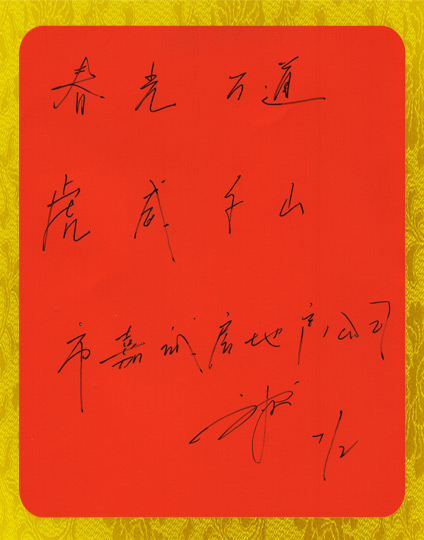 春光万道
虎威千山
市嘉诚房地产公司